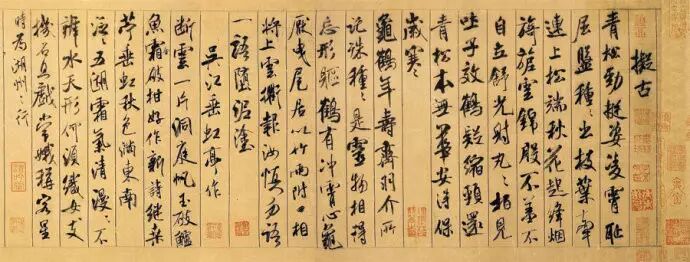 擬古
青松勁挺姿凌霄恥
屈盤種〻出枝葉牽
連上松端秋花起絳烟
旖旎雲錦殷不羞不
自立舒光射丸〻柏見
吐子效鶴疑縮頸還
青松本無華安得保
歲寒
龜鶴年壽齊羽介所
託殊種〻是靈物相得
忘形軀鶴有冲霄心龜
厭曳尾居以竹兩附口相
將上雲衢報汝慎勿語
一語墮泥塗
吳江垂虹亭作
斷雲一片洞庭帆玉破鱸
魚霜破柑好作新詩繼桑
苧垂虹秋色滿東南
泛〻五湖霜氣清漫〻不
辨水天形何須織女支
機石且戲常娥稱客星
時為湖州之行